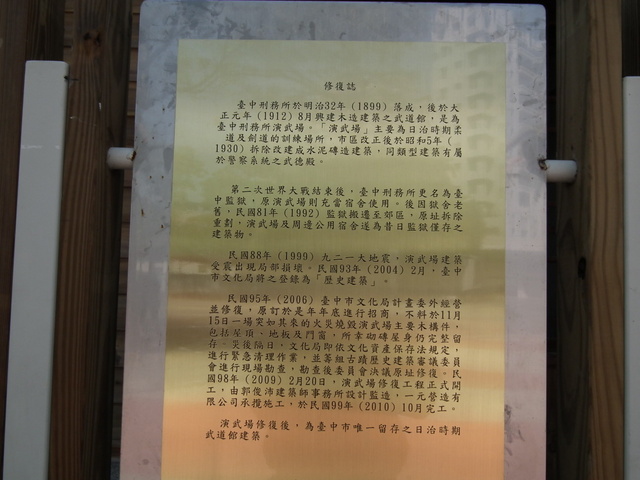 修復誌
臺中刑務所於明治32年（1899）落成，後於大
正元年（1912）8月興建木造建築之武道館，是為
臺中刑務所演武場。「演武場」主要為日治時期柔
道及劍道的訓練場所，市區改正後於昭和5年（
1930）拆除改建成水泥磚造建築，同類型建築有屬
於警察系統之武德殿。
第二次世界大戰結束後，臺中刑務所更名為臺
中監獄，原演武場則充當宿舍使用。後因獄舍老
舊，民國81年（1992）監獄搬遷至郊區，原址拆除
重劃，演武場及周邊公用宿舍遂為昔日監獄僅存之
建築物。
民國88年（1999）九二一大地震，演武場建築
受震出現局部損壞。民國93年（2004）2月，臺中
市文化局將之登錄為「歷史建築」。
民國95年（2006）臺中市文化局計畫委外經營
並修復，原訂於是年年底進行招商，不料於11月
15日一場突如其來的火災燒毀演武場主要木構件，
包括屋頂、地板及門窗，所幸砌磚屋身仍完整留
存。災後隔日，文化局即依文化資產保存法規定，
進行緊急清理作業，並籌組古蹟歷史建築審議委員
會進行現場勘查，勘查後委員會決議原址修復。民
國98年（2009）2月20日，演武場修復工程正式開
工，由郭俊沛建築師事務所設計監造，一元營造有
限公司承攬施工，於民國99年（2010）10月完工。
演武場修復後，為臺中市唯一留存之日治時期
武道館建築。